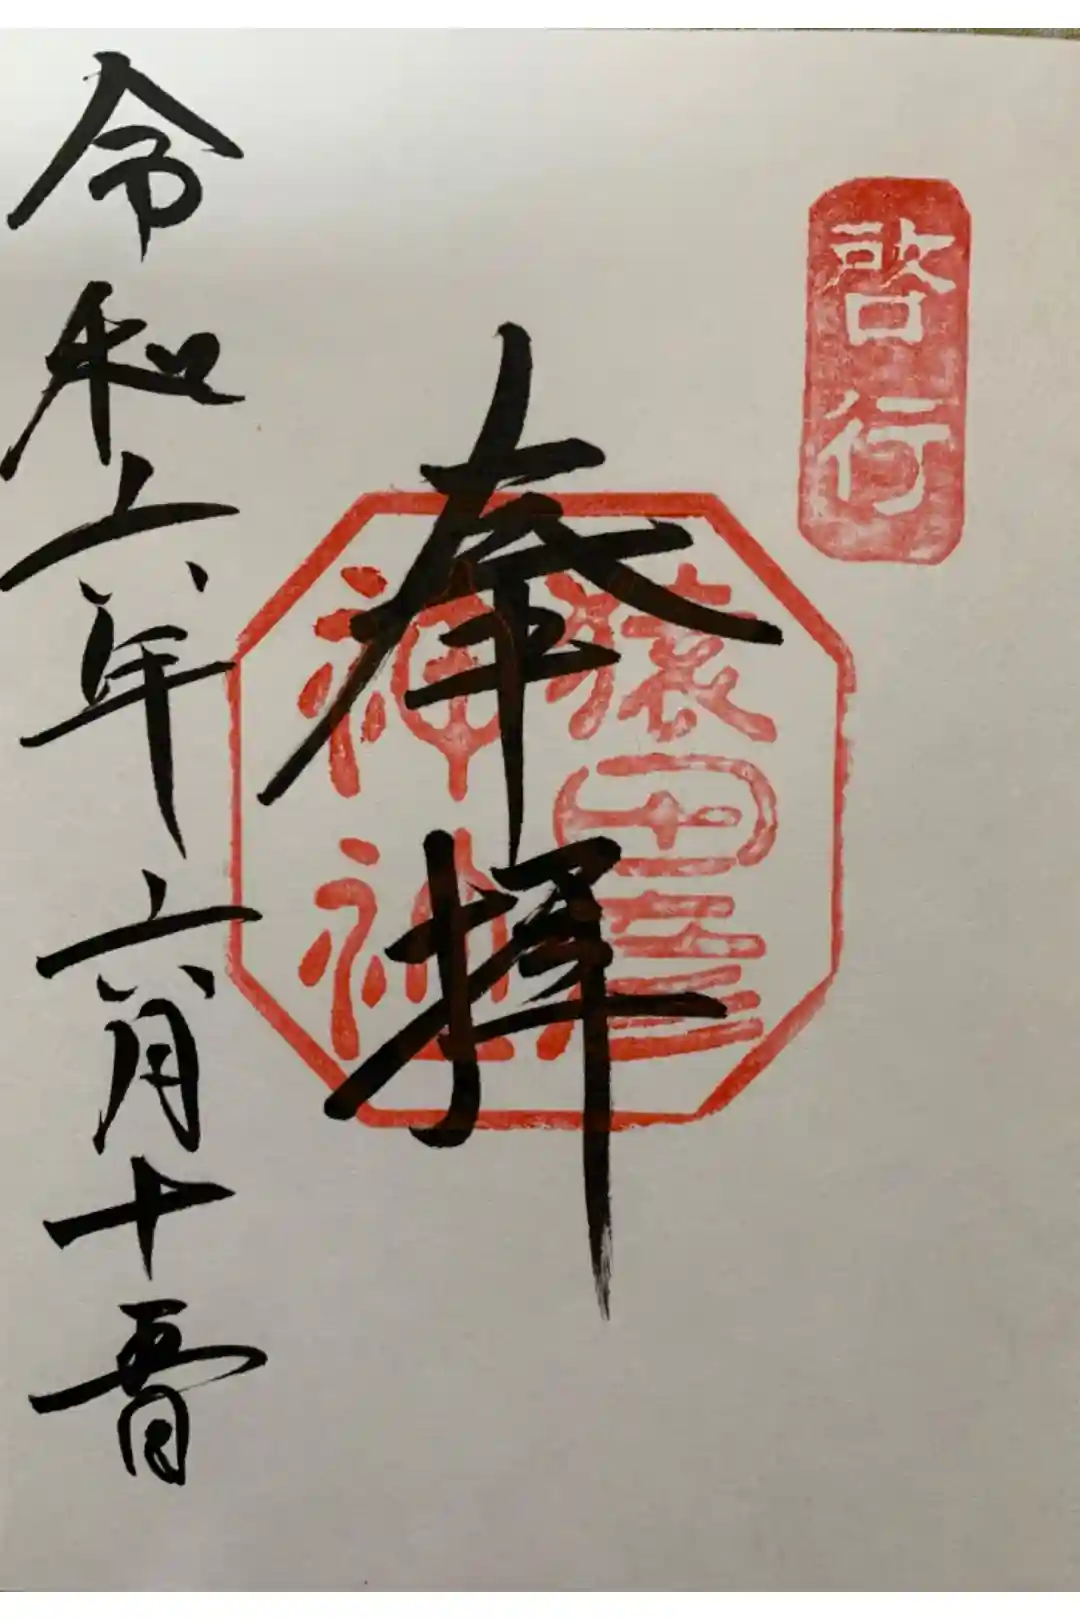 啓行
奉拝
猿田彦
神社
令和六年六月十五日